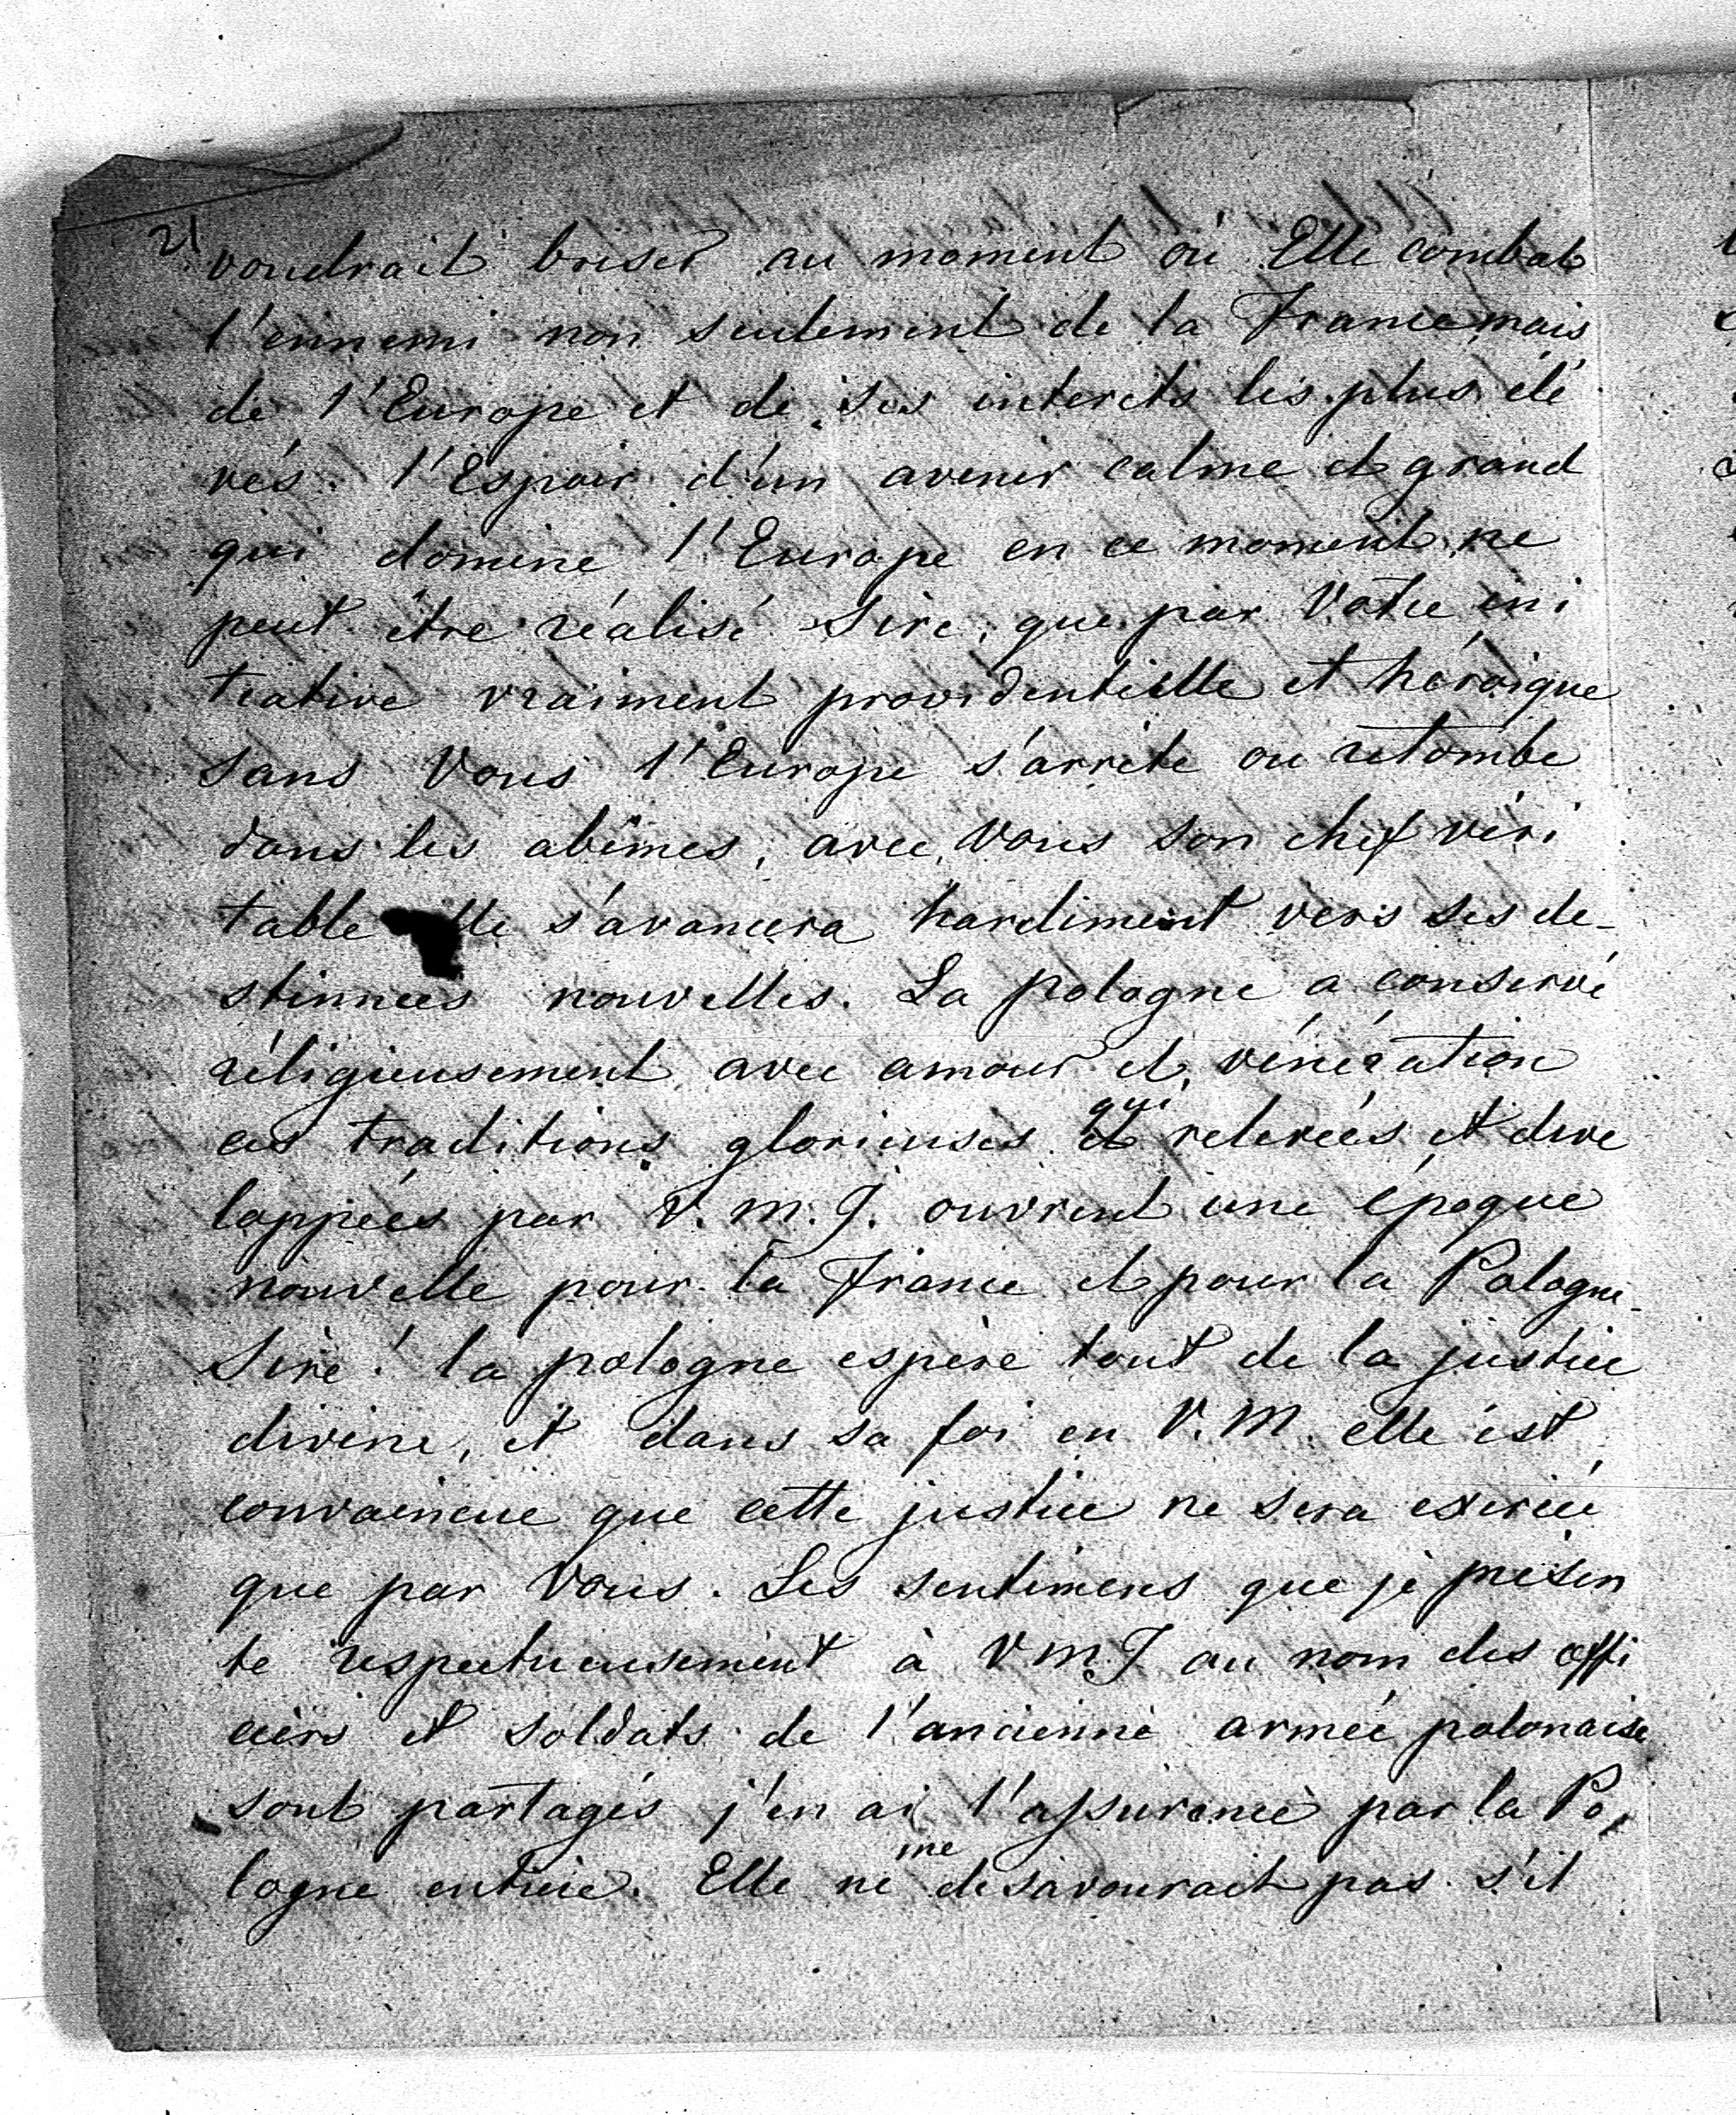 2/
voudrait briser au moment où Elle combat
l'ennemi non seulement de la France, mais
de l'Europe et de ses interets les plus élé
vés. l'Espoir d'un avenir calme et grand
qui domine l'Europe en ce moment, ne
peut être réalisé Sire, que par Votre ini
tiative vraiment providentielle et héroique
sans Vous l'Europe s'arrête ou retombe
dans les abîmes, avec Vous son chef véri
table elle s'avancera hardiment vers ses de-
stinnées nouvelles. La pologne a conservé
réligieusement avec amour et vénération
ces traditions glorieuses qui relevées et deve
loppées par V. M. I. ouvrent une époque
nouvelle pour la France et pour la Pologne.
Sire! la pologne espère tout de la justice
divine, et dans sa foi en V. M. elle est
convaincue que cette justice ne sera exercée
que par Vous. Les sentimens que je présen
te respectueusement à V M. I au nom des offi
ciers et soldats de l'ancienne armée polonaise
sont partagés j'en ai l'assurance par la Po,
logne entière. Elle ne me desavourait pas s'il